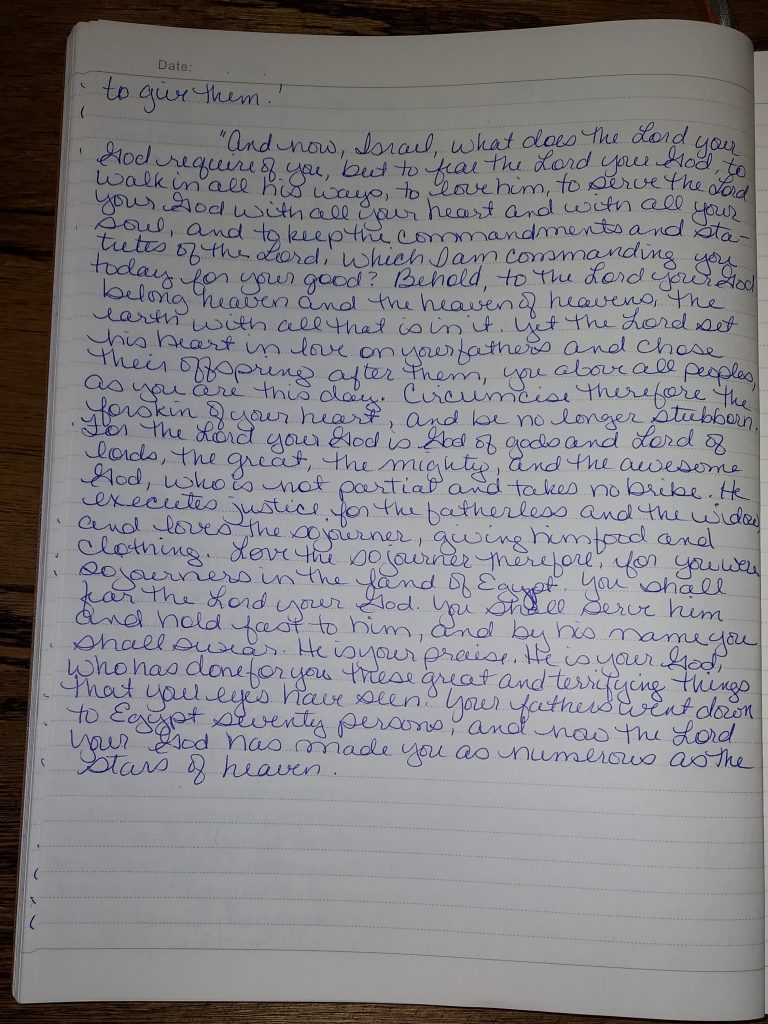 Date:
to give them.'
"And now, Israel, what does the Lord your
God require of you, but to fear the Lord your God, to
walk in all his ways, to love him, to serve the Lord
your God with all your heart and with all your
soul, and to keep the commandments and sta-
tutes of the Lord, which I am commanding you
today for your good? Behold, to the Lord your God
belong heaven and the heaven of heavens, the
earth with all that is in it. Yet the Lord set
his heart in love on your fathers and chose
their offspring after them, you above all peoples,
as you are this day. Circumcise therefore the
forskin of your heart, and be no longer stubborn.
For the Lord your God is God of gods and Lord of
lords, the great, the mighty, and the awesome
God, who is not partial and takes no bribe. He
executes justice for the fatherless and the widow,
and loves the sojourner, giving him food and
clothing. Love the sojourner therefore, for you were
sojourners in the land of Egypt. You shall
fear the Lord your God. You shall serve him
and hold fast to him, and by his name you
shall swear. He is your praise. He is your God,
who has done for you these great and terrifying things
that your eyes have seen. Your fathers went down
to Egypt seventy persons, and now the Lord
your God has made you as numerous as the
stars of heaven.